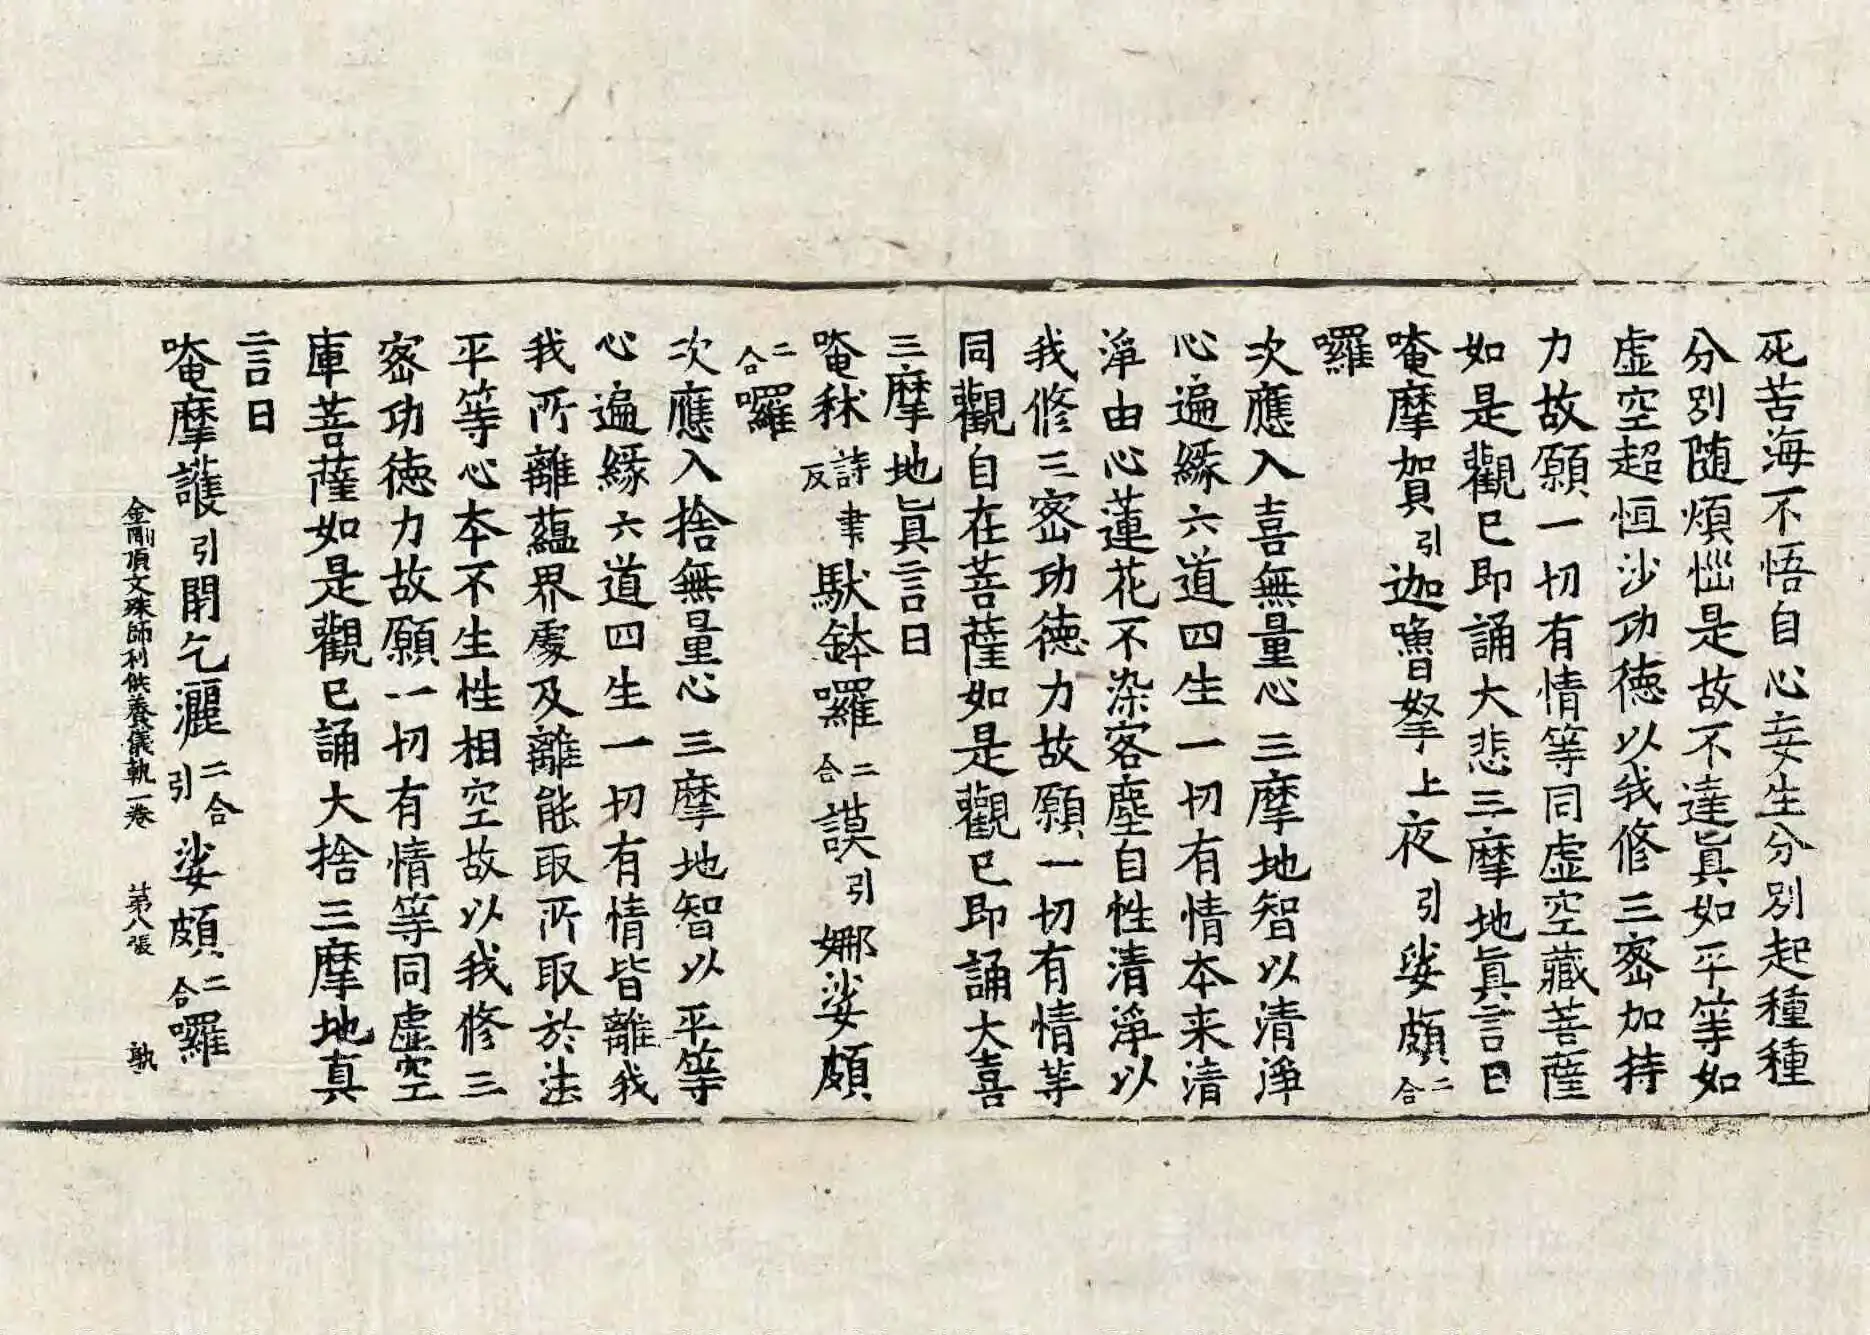 死苦海不悟自心妄生分別起種種
分別随煩惱是故不達眞如平等如
虛空超恒沙功徳以我修三密加持
力故願一切有情等同虛空藏菩薩
如是觀已即誦大悲三摩地眞言曰
唵摩賀引迦嚕拏上夜引娑頗二合
囉
次應入喜無量心三摩地智以清淨
心遍緣六道四生一切有情本来清
淨由心蓮花不染客塵自性清淨以
我修三密功徳力故願一切有情等
同觀自在菩薩如是觀已即誦大喜
三摩地眞言曰
唵秫詩聿反馱鉢囉二合謨引娜娑頗
二合囉
次應入捨無量心三摩地智以平等
心遍緣六道四生一切有情皆離我
我所離蘊界處及離能取所取於法
平等心本不生性相空故以我修三
密功徳力故願一切有情等同虛空
庫菩薩如是觀已誦大捨三摩地真
言曰
唵摩護引閉乞灑二合引娑頗二合囉
金剛頂文殊師利供養儀軌一卷 苐八張 孰